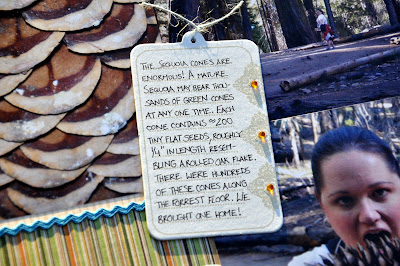 THE SEQUOIA CONES ARE
ENORMOUS! A MATURE
SEQUOIA MAY BEAR THOU-
SANDS OF GREEN CONES
AT ANY ONE TIME. EACH
CONE CONTAINS ≈200
TINY FLAT SEEDS, ROUGHLY
1/4" IN LENGTH RESEM-
BLING A ROLLED OAK FLAKE.
THERE WERE HUNDREDS
OF THESE CONES ALONG
THE FORREST FLOOR. WE
BROUGHT ONE HOME!